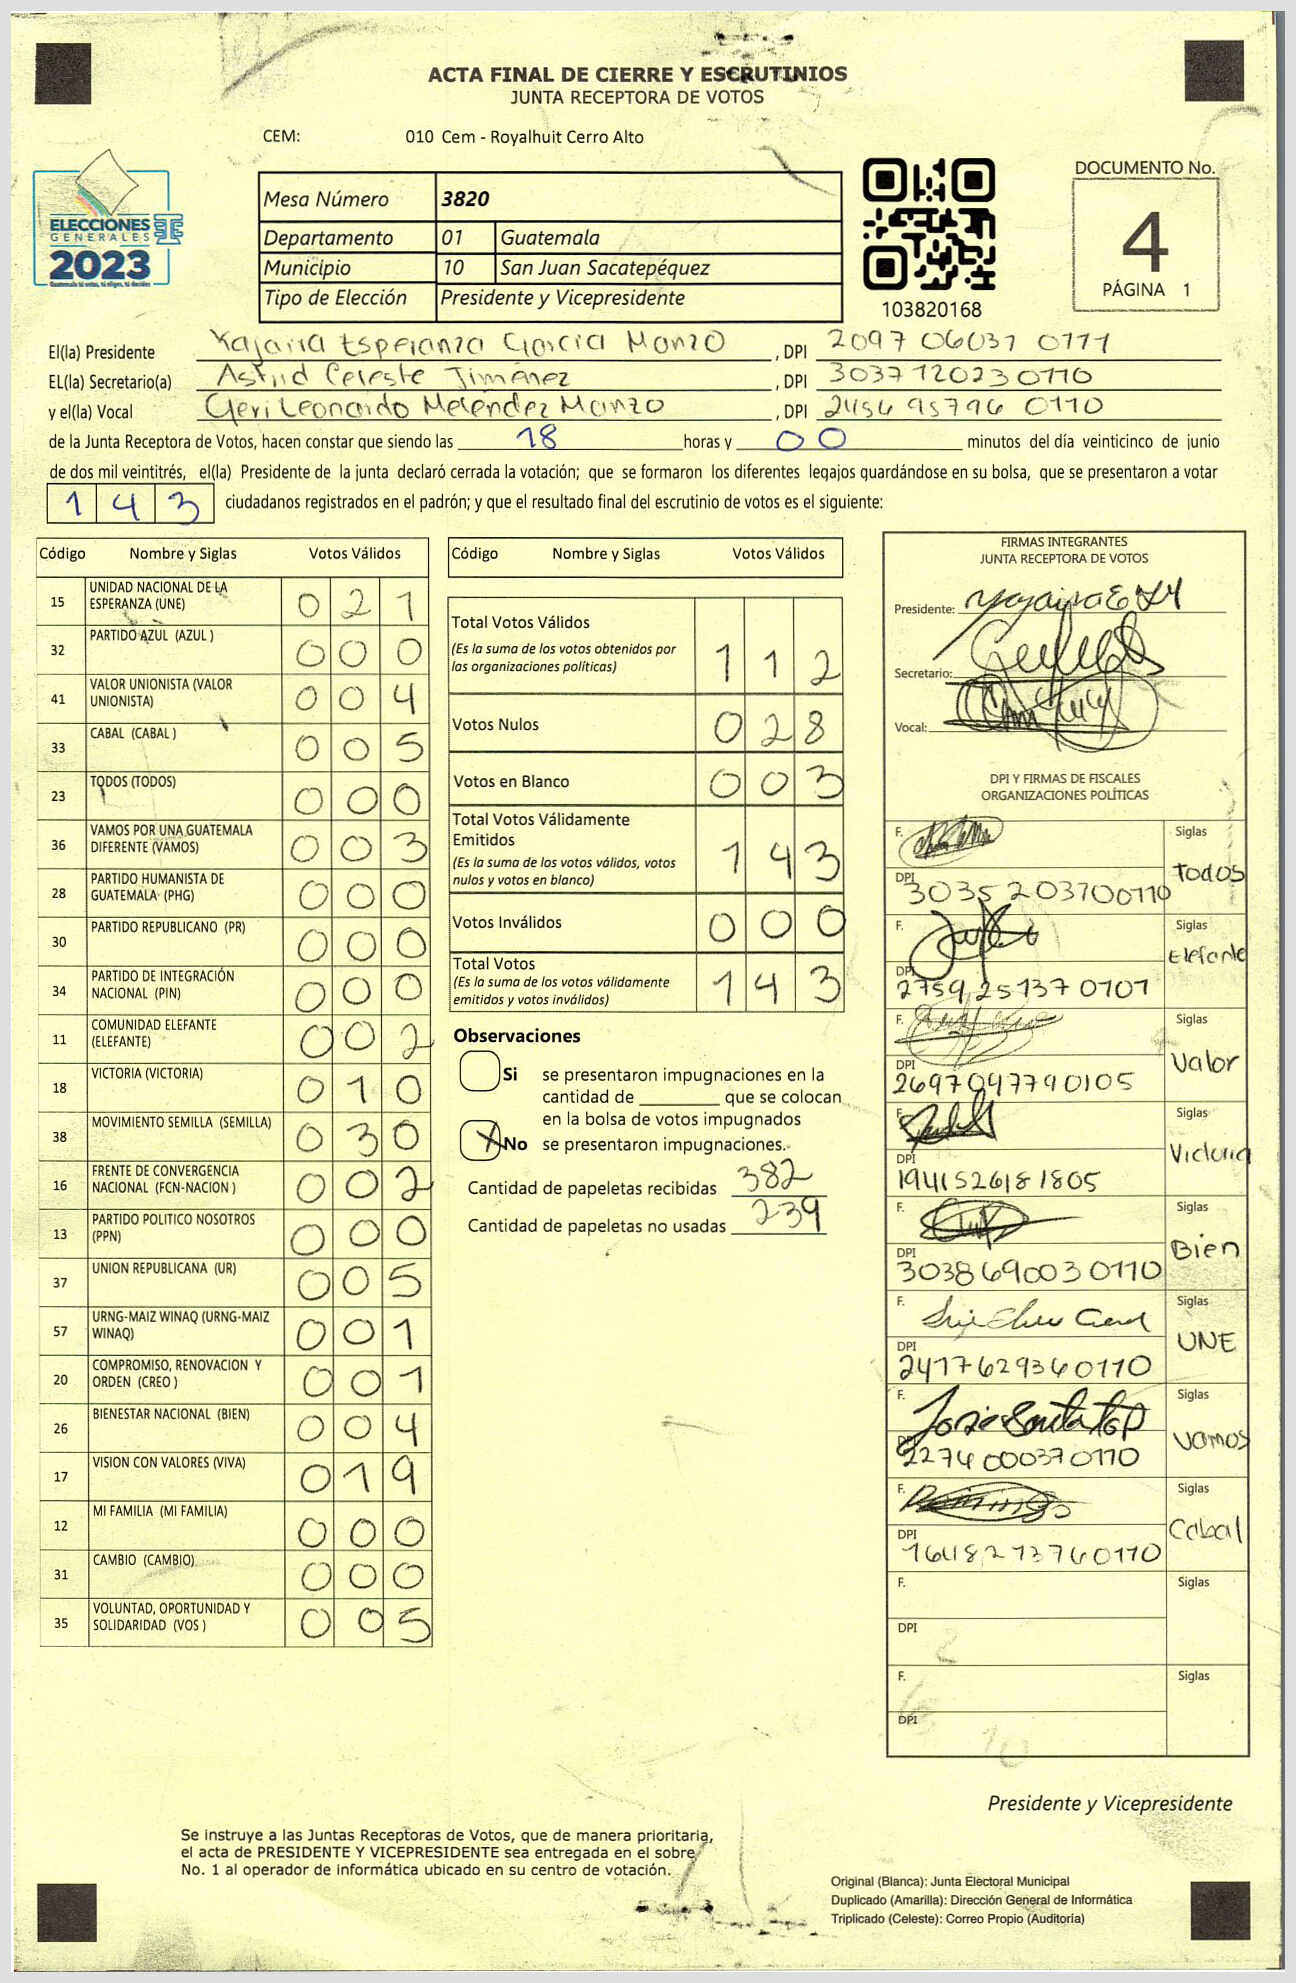 ACTA FINAL DE CIERRE Y ESCRUTINIOS
JUNTA RECEPTORA DE VOTOS
CEM: 010 Cem - Royalhuit Cerro Alto
ELECCIONES
GENERALES
2023
Guatemala tú votas, tú eliges, tú decides
Mesa Número 3820
Departamento 01 Guatemala
Municipio 10 San Juan Sacatepéquez
Tipo de Elección Presidente y Vicepresidente
103820168
DOCUMENTO No.
4
PÁGINA 1
El(la) Presidente Yajaira Esperanza García Monzo, DPI 2097 06031 0111
EL(la) Secretario(a) Astrid Celeste Jiménez, DPI 3037120230110
y el(la) Vocal Geri Leonardo Meléndez Manzo, DPI 2456 95796 0110
de la Junta Receptora de Votos, hacen constar que siendo las 18 horas y 00 minutos del día veinticinco de junio
de dos mil veintitrés, el(la) Presidente de la junta declaró cerrada la votación; que se formaron los diferentes legajos guardándose en su bolsa, que se presentaron a votar
143 ciudadanos registrados en el padrón; y que el resultado final del escrutinio de votos es el siguiente:
Código Nombre y Siglas Votos Válidos
15 UNIDAD NACIONAL DE LA ESPERANZA (UNE) 021
32 PARTIDO AZUL (AZUL ) 000
41 VALOR UNIONISTA (VALOR UNIONISTA) 004
33 CABAL (CABAL ) 005
23 TODOS (TODOS) 000
36 VAMOS POR UNA GUATEMALA DIFERENTE (VAMOS) 003
28 PARTIDO HUMANISTA DE GUATEMALA (PHG) 000
30 PARTIDO REPUBLICANO (PR) 000
34 PARTIDO DE INTEGRACIÓN NACIONAL (PIN) 000
11 COMUNIDAD ELEFANTE (ELEFANTE) 002
18 VICTORIA (VICTORIA) 010
38 MOVIMIENTO SEMILLA (SEMILLA) 030
16 FRENTE DE CONVERGENCIA NACIONAL (FCN-NACION ) 002
13 PARTIDO POLITICO NOSOTROS (PPN) 000
37 UNION REPUBLICANA (UR) 005
57 URNG-MAIZ WINAQ (URNG-MAIZ WINAQ) 001
20 COMPROMISO, RENOVACION Y ORDEN (CREO ) 001
26 BIENESTAR NACIONAL (BIEN) 004
17 VISION CON VALORES (VIVA) 019
12 MI FAMILIA (MI FAMILIA) 000
31 CAMBIO (CAMBIO) 000
35 VOLUNTAD, OPORTUNIDAD Y SOLIDARIDAD (VOS ) 005
Código Nombre y Siglas Votos Válidos
Total Votos Válidos
(Es la suma de los votos obtenidos por las organizaciones políticas) 112
Votos Nulos 028
Votos en Blanco 003
Total Votos Válidamente Emitidos
(Es la suma de los votos válidos, votos nulos y votos en blanco) 143
Votos Inválidos 000
Total Votos
(Es la suma de los votos válidamente emitidos y votos inválidos) 143
Observaciones
Si se presentaron impugnaciones en la
cantidad de ________ que se colocan
en la bolsa de votos impugnados
X No se presentaron impugnaciones.
Cantidad de papeletas recibidas 382
Cantidad de papeletas no usadas 239
FIRMAS INTEGRANTES
JUNTA RECEPTORA DE VOTOS
Presidente:
Secretario:
Vocal:
DPI Y FIRMAS DE FISCALES
ORGANIZACIONES POLÍTICAS
F. Siglas Todos
DPI 3035 203700110
F. Siglas Elefante
DPI 2759 25137 0101
F. Siglas Valor
DPI 2697047790105
F. Siglas Victoria
DPI 1941526181805
F. Siglas Bien
DPI 3038690030110
F. Siglas UNE
DPI 2417629360110
F. Siglas Vamos
DPI 2274000370110
F. Siglas Cabal
DPI 1648273760110
F. Siglas
DPI
F. Siglas
DPI
Presidente y Vicepresidente
Se instruye a las Juntas Receptoras de Votos, que de manera prioritaria,
el acta de PRESIDENTE Y VICEPRESIDENTE sea entregada en el sobre
No. 1 al operador de informática ubicado en su centro de votación.
Original (Blanca): Junta Electoral Municipal
Duplicado (Amarilla): Dirección General de Informática
Triplicado (Celeste): Correo Propio (Auditoría)